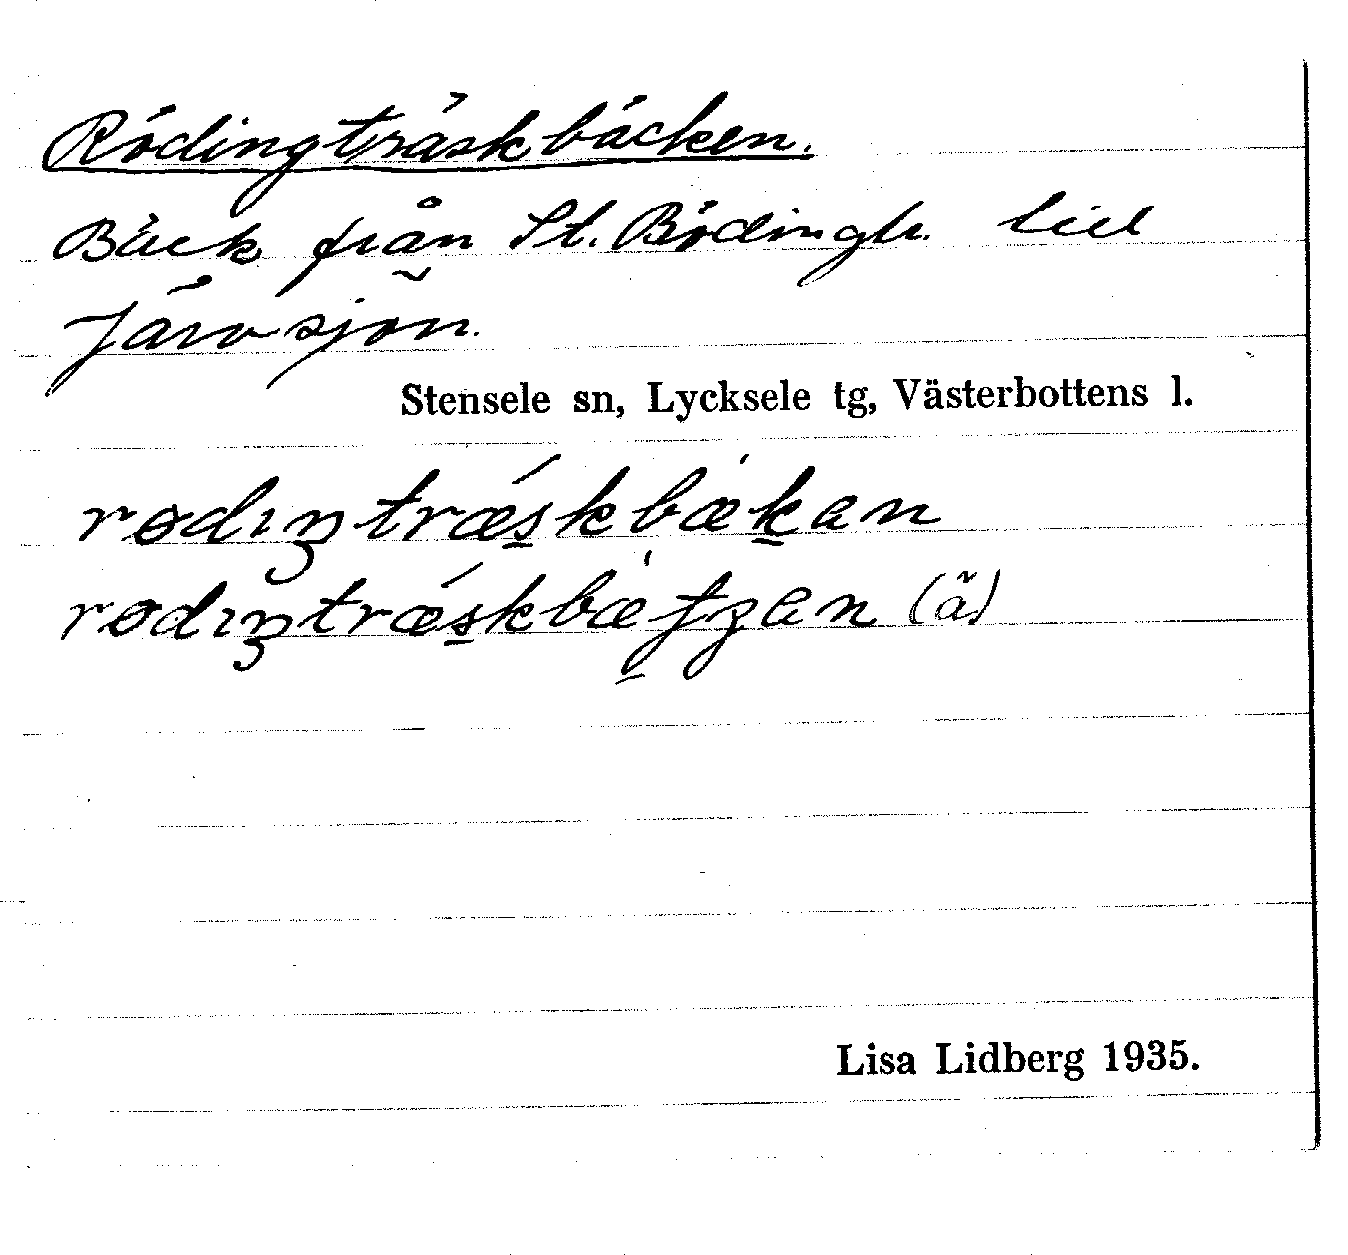 Rödingträskbäcken.
Bäck från St. Rödingtr. till
Järvsjön.
Stensele sn, Lycksele tg, Västerbottens l.
rødıŋtrǽskbækan
rødıŋtrǽskbætʒan (ä)
Lisa Lidberg 1935.